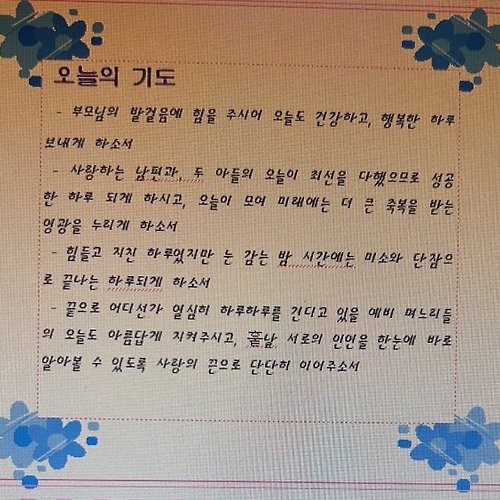 오늘의 기도
- 부모님의 발걸음에 힘을 주시어 오늘도 건강하고, 행복한 하루
보내게 하소서
- 사랑하는 남편과, 두 아들의 오늘이 최선을 다했으므로 성공
한 하루 되게 하시고, 오늘이 모여 미래에는 더 큰 축복을 받는
영광을 누리게 하소서
- 힘들고 지친 하루였지만 눈 감는 밤 시간에는 미소와 단잠으
로 끝나는 하루되게 하소서
- 끝으로 어디선가 열심히 하루하루를 견디고 있을 예비 며느리들
의 오늘도 아름답게 지켜주시고, 훗날 서로의 인연을 한눈에 바로
알아볼 수 있도록 사랑의 끈으로 단단히 이어주소서